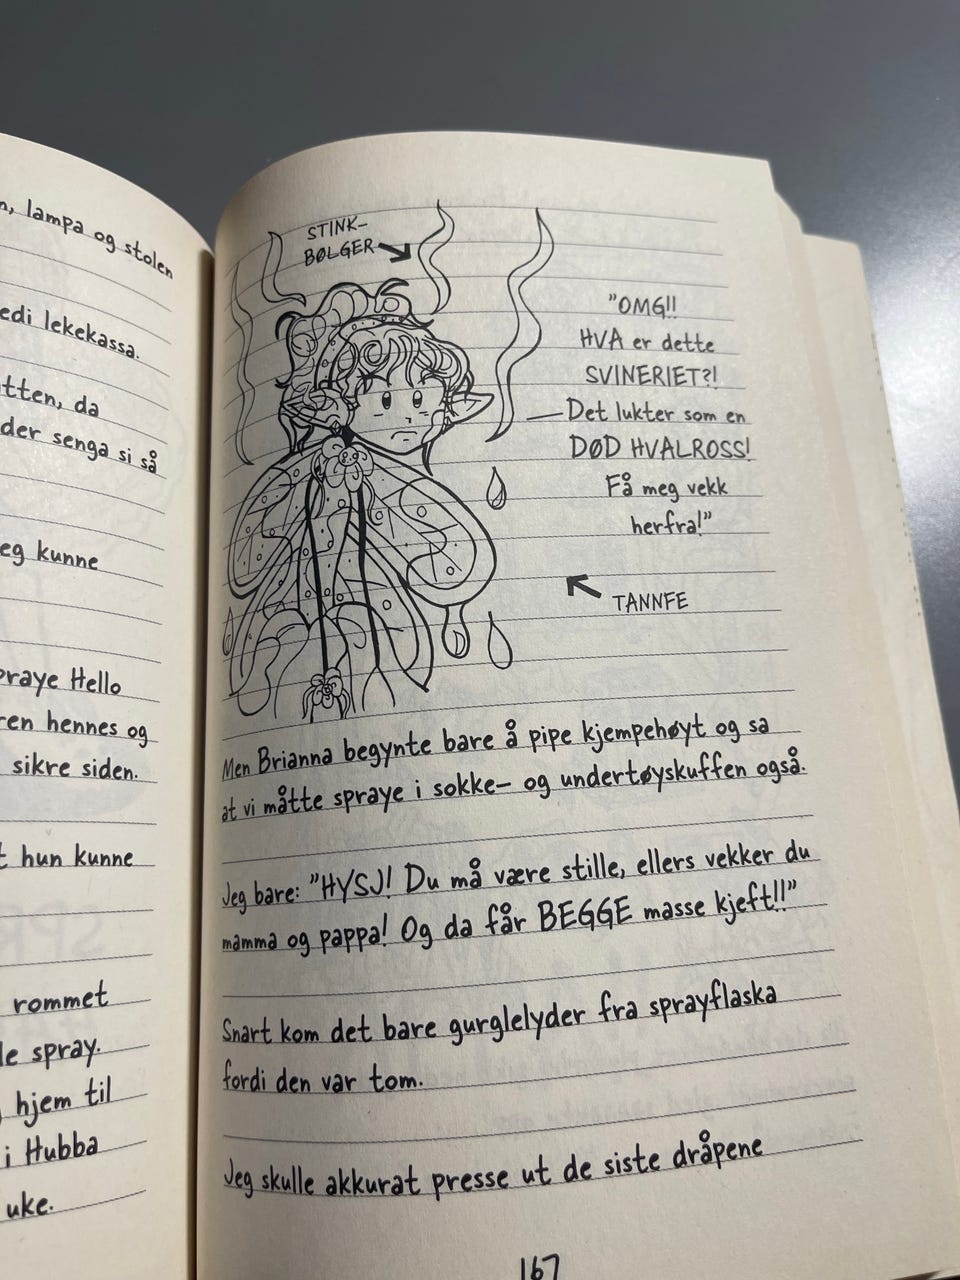 n, lampa og stolen
edi lekekassa.
tten, da
der senga si så
eg kunne
praye Hello
ren hennes og
sikre siden.
t hun kunne
rommet
le spray.
hjem til
i Hubba
uke.
STINK-
BØLGER
"OMG!!
HVA er dette
SVINERIET?!
Det lukter som en
DØD HVALROSS!
Få meg vekk
herfra!"
TANNFE
Men Brianna begynte bare å pipe kjempehøyt og sa
at vi måtte spraye i sokke- og undertøyskuffen også.
Jeg bare: "HYSJ! Du må være stille, ellers vekker du
mamma og pappa! Og da får BEGGE masse kjeft!!"
Snart kom det bare gurglelyder fra sprayflaska
fordi den var tom.
Jeg skulle akkurat presse ut de siste dråpene
167